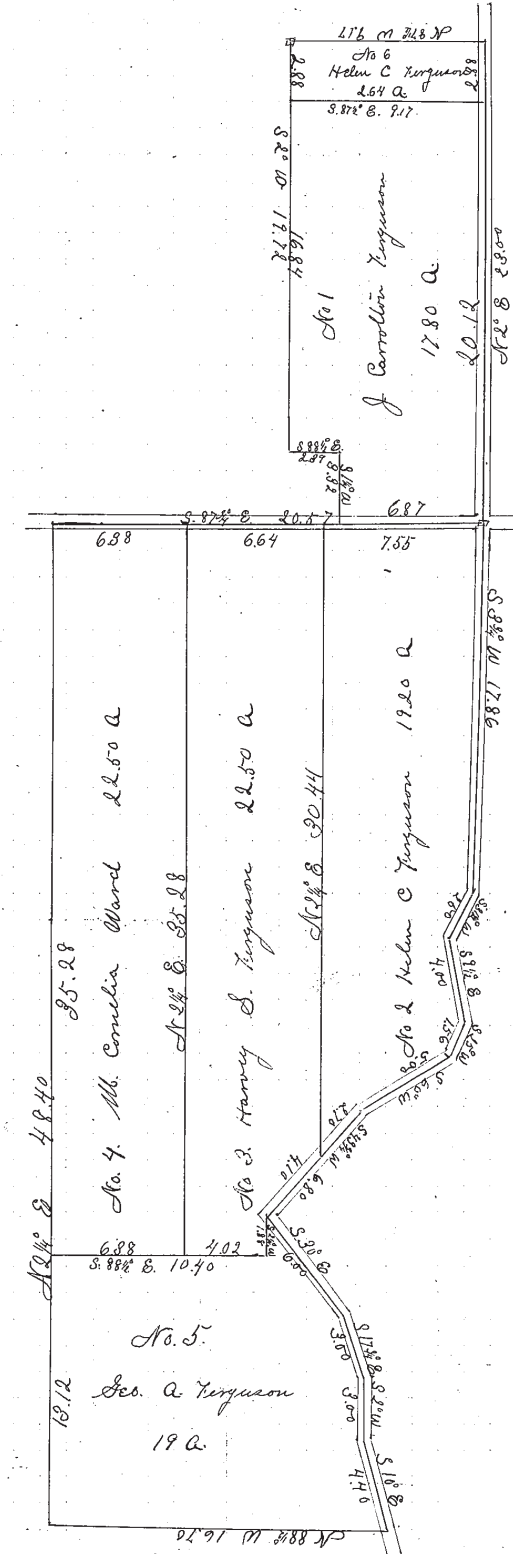 N 87¾ W 9.17
No 6
Helen C Ferguson
2.64 A.
2.88
2.88
S. 87¾° E. 9.17
S 2° W 19.72
16.84
No 1
J Carrollton Ferguson
17.80 A.
20.12
N 2° E 23.00
S 88¼° E.
2.37
S 1¼° W
3.32
6.87
S. 87¾° E. 20.57
6.38
6.64
7.55
S 3¾° W 17.86
No. 4. M. Cornelia Ward 22.50 A
35.28
N 2¼° E 48.40
N 2¼° E 35.28
No 3. Harvey S. Ferguson 22.50 A
N 2¼ E 30.44
No 2 Helen C Ferguson 19.20 A
4.00
1.56
S 25° W
5.03
S 60° W
2.70
S 43¾° W 6.80
4.10
6.38
4.02
1.88
S. 88¼° E. 10.40
6.00
No. 5.
Geo. A Ferguson
19 A.
13.12
S 17¾ E
3.50
S 2° W
3.00
S 16° E
4.40
N 88¼° W 16.70